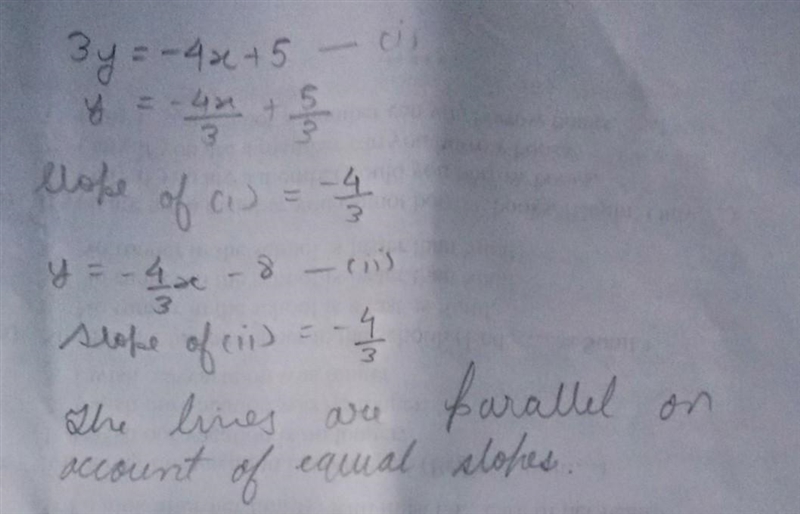 3y = -4x + 5 — (i)
y = -4x/3 + 5/3
Slope of (i) = -4/3
y = -4/3 x - 8 — (ii)
Slope of (ii) = -4/3
The lines are parallel on
account of equal slopes.